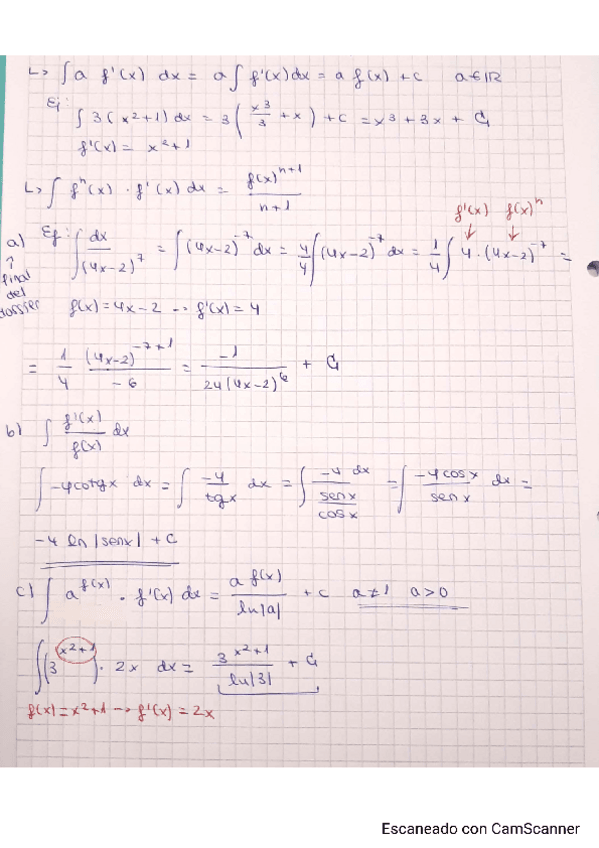 ↳ ∫ a f'(x) dx = a ∫ f'(x) dx = a f(x) + C a ∈ ℝ
Ej: ∫ 3(x²+1) dx = 3 (x³/3 + x) + C = x³ + 3x + C
f'(x) = x²+1
↳ ∫ fⁿ(x) · f'(x) dx = f(x)ⁿ⁺¹ / n+1
f'(x) f(x)ⁿ
a) Ej: ∫ dx/(4x-2)⁷ = ∫ (4x-2)⁻⁷ dx = 4/4 ∫ (4x-2)⁻⁷ dx = 1/4 ∫ 4·(4x-2)⁻⁷ =
↑
final
del
dossier
f(x) = 4x-2 --> f'(x) = 4
= 1/4 (4x-2)⁻⁷⁺¹/-6 = -1/24(4x-2)⁶ + C
b) ∫ f'(x)/f(x) dx
∫ -4cotgx dx = ∫ -4/tgx dx = ∫ -4 dx/(senx/cosx) = ∫ -4cosx/senx dx =
-4 ln|senx| + C
c) ∫ a^f(x) · f'(x) dx = a^f(x)/ln|a| + C a≠1 a>0
∫ (3^x²+1) · 2x dx = 3^x²+1/ln|3| + C
f(x) = x²+1 --> f'(x) = 2x
Escaneado con CamScanner